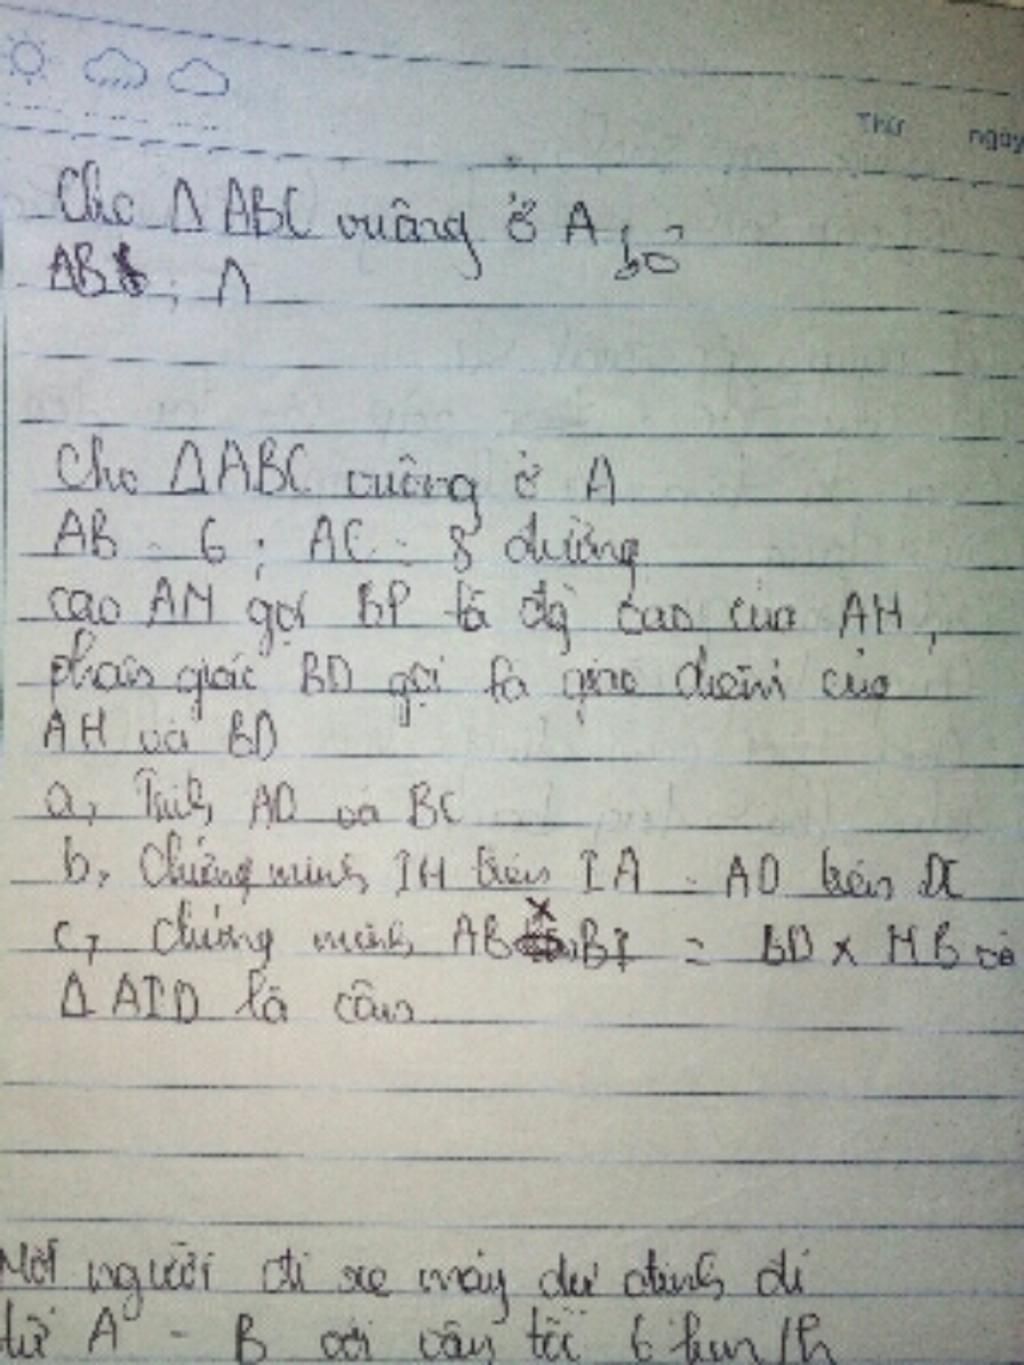 Thứ ngày
Cho Δ ABC vuông ở A
AB ; A
Cho ΔABC vuông ở A
AB = 6 ; AC = 8 đường
cao AH gọi BP là độ cao của AH,
phân giác BD gọi là giao điểm của
AH và BD
a, Tính AD và BC
b, Chứng minh IH trên IA = AD trên DC
c, chứng minh AB x BI = BD x HB và
Δ AID là cân
Một người đi xe máy dự định đi
từ A - B với vận tốc 6 km/h